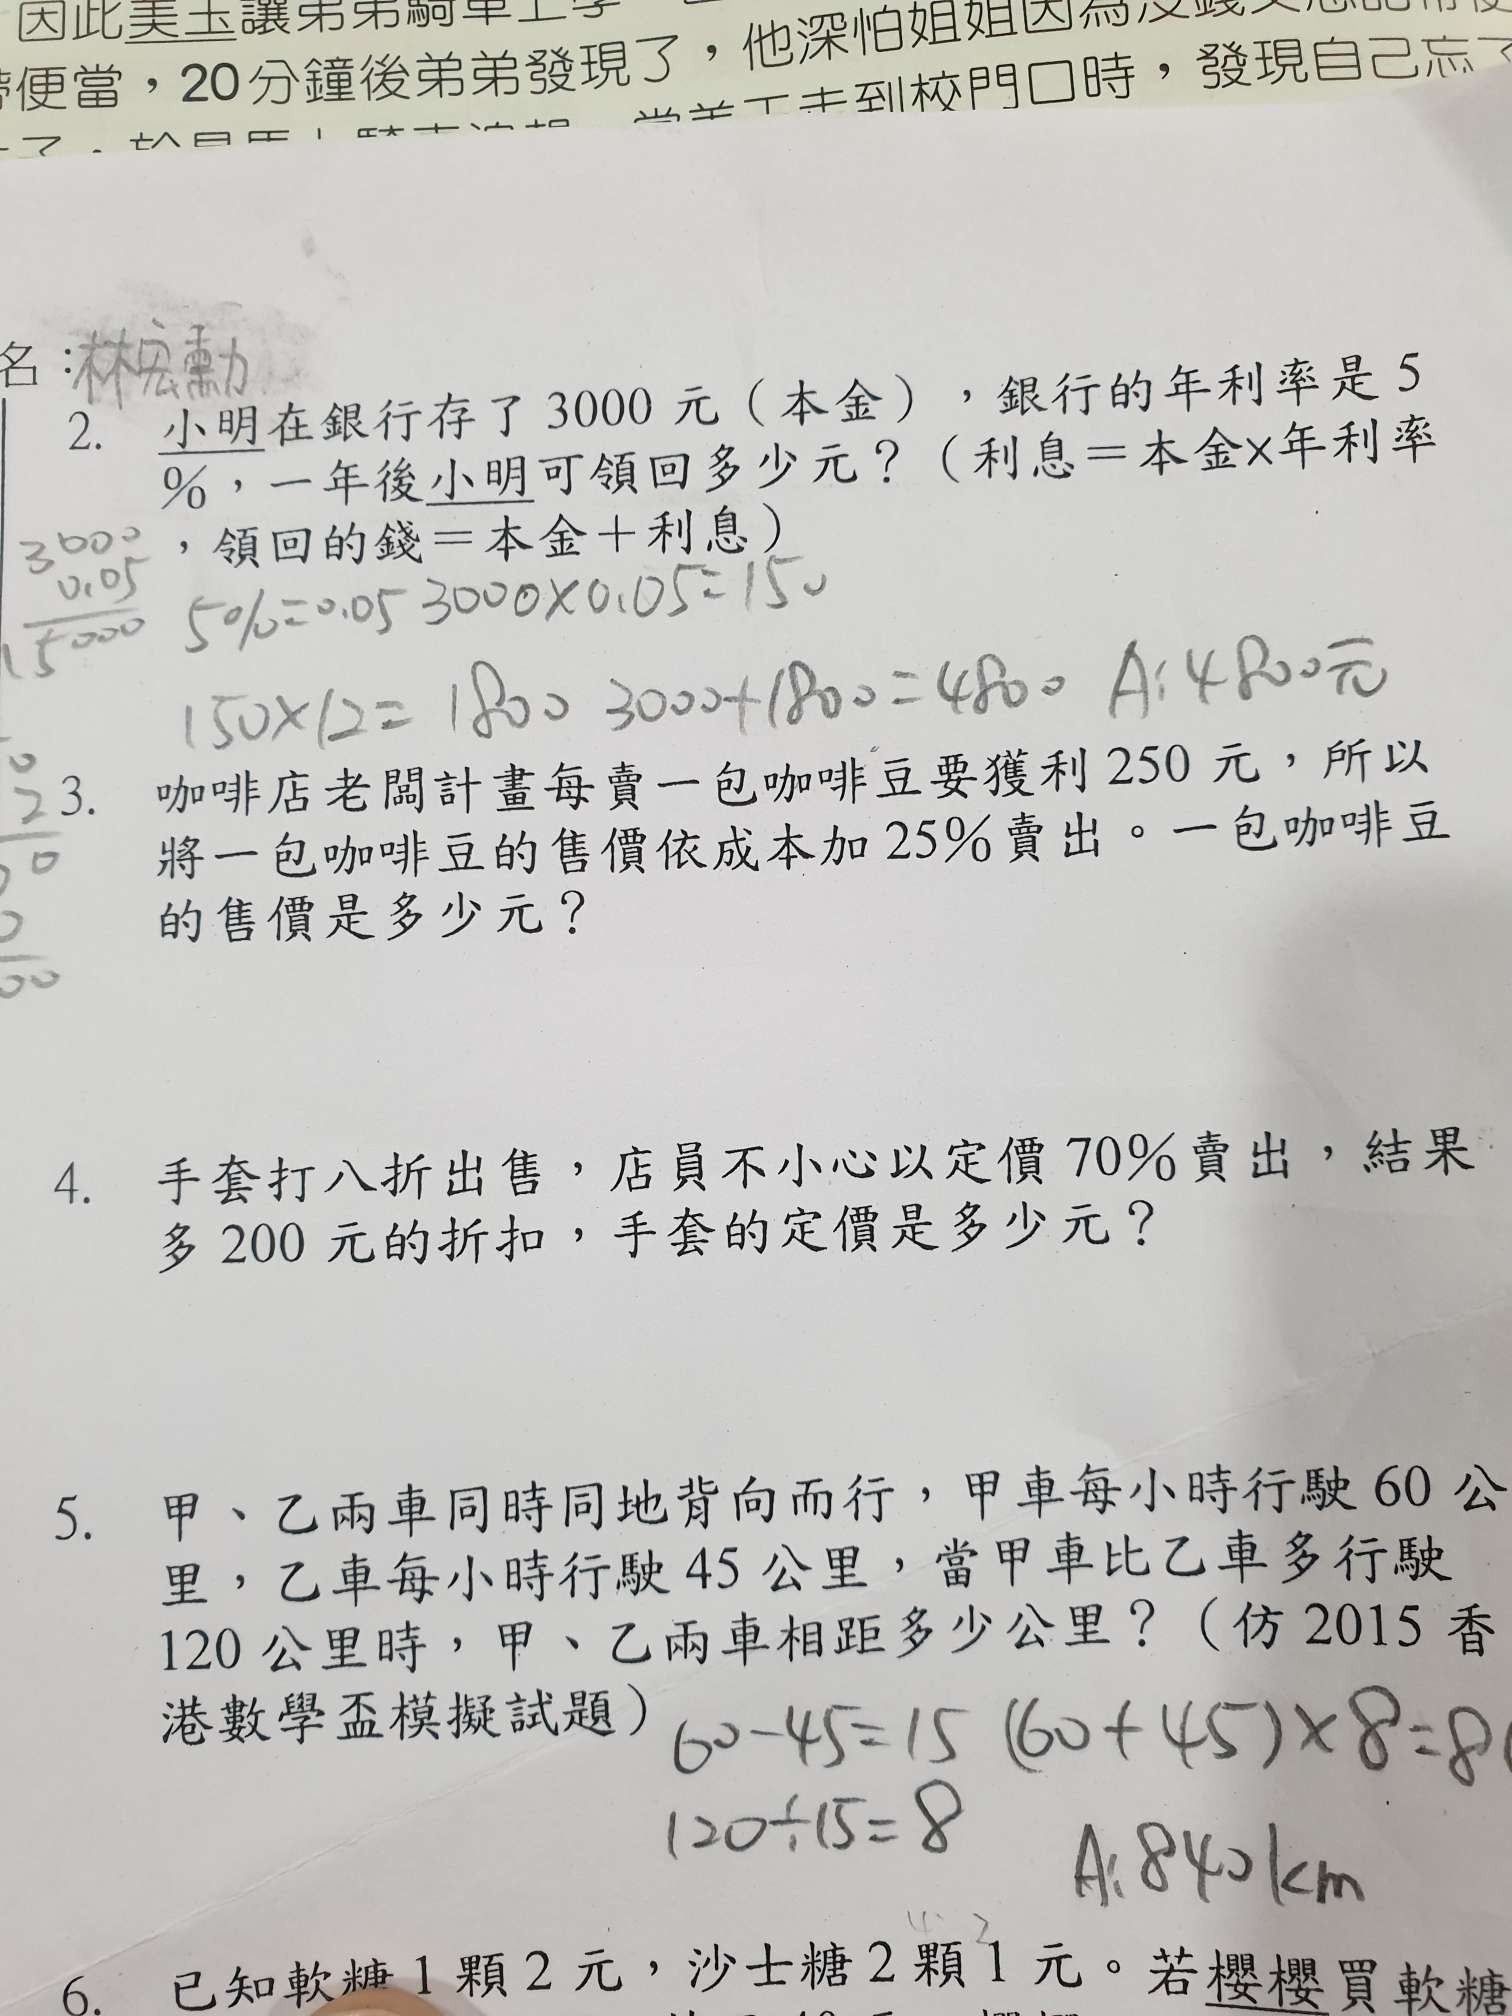 因此美玉讓弟弟騎車上學
帶便當，20分鐘後弟弟發現了，他深怕姐姐因為沒錢又忘記帶便
於是馬上騎車追趕，當美玉走到校門口時，發現自己忘了
名：林宏勳
2. 小明在銀行存了 3000 元（本金），銀行的年利率是 5
%，一年後小明可領回多少元？（利息＝本金×年利率
，領回的錢＝本金＋利息）
3000
0.05
15000
5%=0.05 3000×0.05=150
150×12=1800 3000+1800=4800 A:4800元
3. 咖啡店老闆計畫每賣一包咖啡豆要獲利 250 元，所以
將一包咖啡豆的售價依成本加 25%賣出。一包咖啡豆
的售價是多少元？
4. 手套打八折出售，店員不小心以定價 70%賣出，結果
多 200 元的折扣，手套的定價是多少元？
5. 甲、乙兩車同時同地背向而行，甲車每小時行駛 60 公
里，乙車每小時行駛 45 公里，當甲車比乙車多行駛
120 公里時，甲、乙兩車相距多少公里？（仿 2015 香
港數學盃模擬試題）
60-45=15 (60+45)×8=8
120÷15=8
A:840km
6. 已知軟糖 1 顆 2 元，沙士糖 2 顆 1 元。若櫻櫻買軟糖